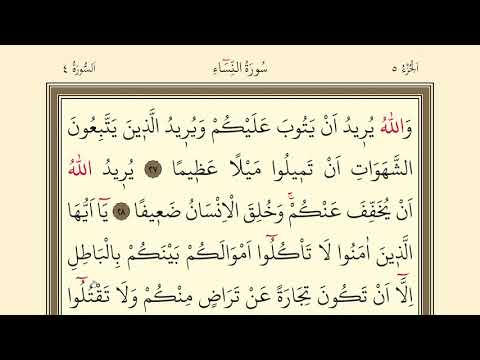 اَلْجُزْءُ ٥ سُورَةُ النِّسَٓاءِ اَلسُّورَةُ ٤
وَاللّٰهُ يُرٖيدُ اَنْ يَتُوبَ عَلَيْكُمْ وَيُرٖيدُ الَّذٖينَ يَتَّبِعُونَ
الشَّهَوَاتِ اَنْ تَمٖيلُوا مَيْلًا عَظٖيمًا ٢٧ يُرٖيدُ اللّٰهُ
اَنْ يُخَفِّفَ عَنْكُمْۚ وَخُلِقَ الْاِنْسَانُ ضَعٖيفًا ٢٨ يَٓا اَيُّهَا
الَّذٖينَ اٰمَنُوا لَا تَأْكُلُٓوا اَمْوَالَكُمْ بَيْنَكُمْ بِالْبَاطِلِ
اِلَّٓا اَنْ تَكُونَ تِجَارَةً عَنْ تَرَاضٍ مِنْكُمْ وَلَا تَقْتُلُٓوا